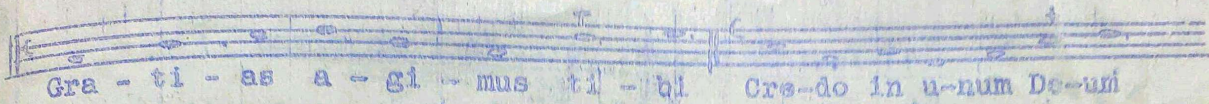 Gra - ti - as a - gi - mus ti - bi Cre-do in u-num De-um